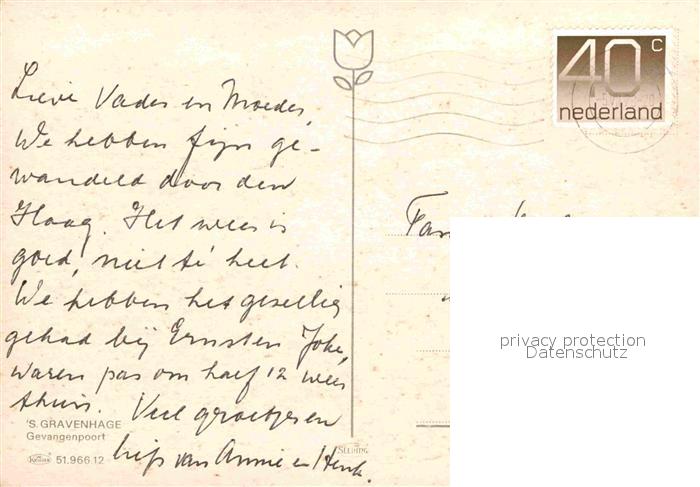 Lieve Vader en Moeder,
We hebben fijn ge-
wandeld door den
Haag. Het weer is
goed, niet té heet.
We hebben het gezellig
gehad bij Ernst en Joke,
waren pas om half 12 weer
thuis. Veel groetjes en
liefs van Annie en Henk.
'S. GRAVENHAGE
Gevangenpoort
51.966.12
40 c
nederland
Fam
privacy protection
Datenschutz